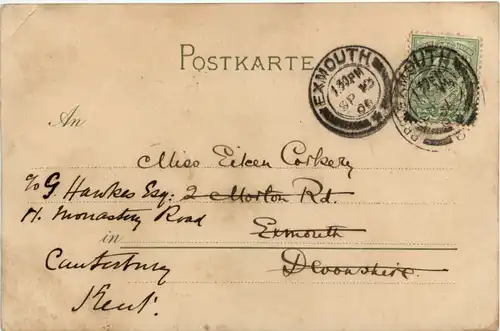 POSTKARTE
EXMOUTH
1.30PM
SP
EXMOUTH
An
Miss Eileen Corkery
c/o G Hawkes Esq: 2 Morton Rd.
H. Monastery Road
in Exmouth
Canterbury Devonshire.
Kent.